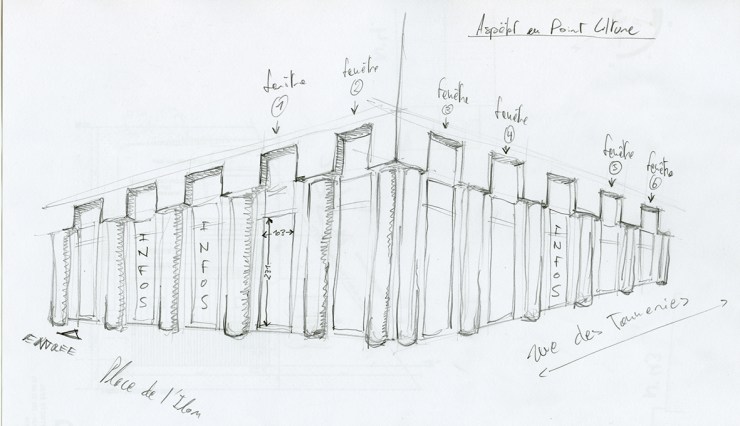 en Point Culture
fenêtre
①
fenêtre
②
fenêtre
③
fenêtre
④
fenêtre
⑤
fenêtre
⑥
INFOS
INFOS
INFOS
ENTREE
Place de l'Ilon
rue des Tanneries